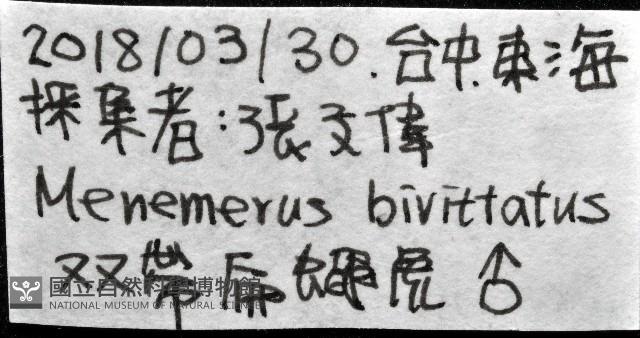 2018/03/30.台中.東海
採集者:張文偉
Menemerus bivittatus
双帶扁蠅虎 ♂
國立自然科學博物館
NATIONAL MUSEUM OF NATURAL SCIENCE